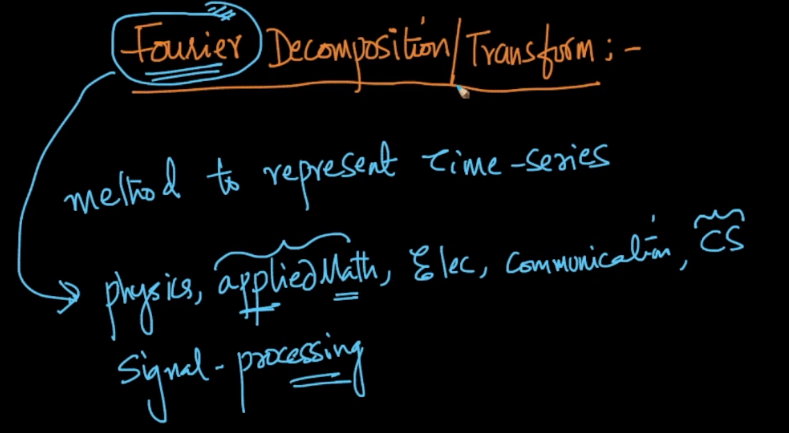 Fourier Decomposition/Transform :-
method to represent time-series
physics, applied Math, Elec, communication, CS
Signal-processing